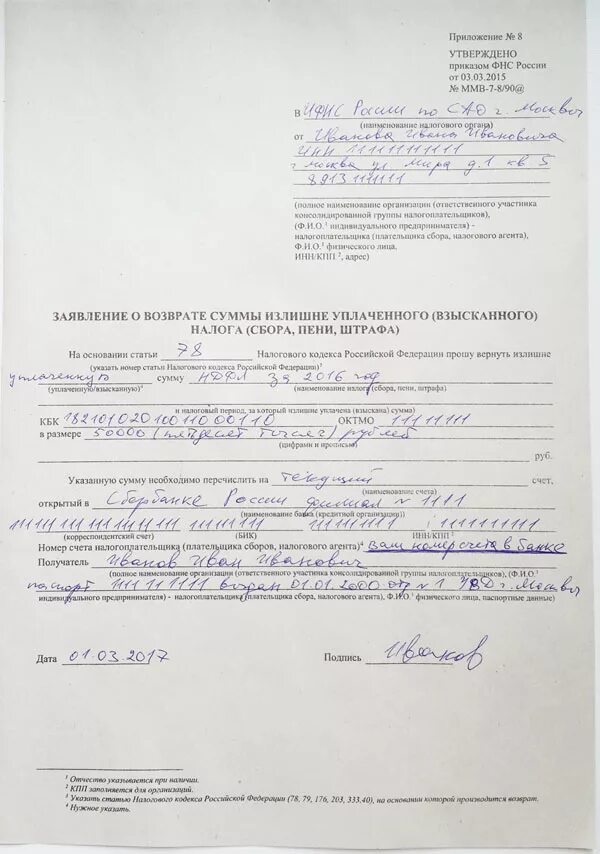 Приложение № 8
УТВЕРЖДЕНО
приказом ФНС России
от 03.03.2015
№ ММВ-7-8/90@
в ИФНС России по САО г. Москвы
(наименование налогового органа)
от Иванова Ивана Ивановича
ИНН 111111111111
г Москва ул. Мира д.1 кв 5
8913 1111111
(полное наименование организации (ответственного участника
консолидированной группы налогоплательщиков),
(Ф.И.О.¹ индивидуального предпринимателя) -
налогоплательщика (плательщика сбора, налогового агента),
Ф.И.О.¹ физического лица,
ИНН/КПП ², адрес)
ЗАЯВЛЕНИЕ О ВОЗВРАТЕ СУММЫ ИЗЛИШНЕ УПЛАЧЕННОГО (ВЗЫСКАННОГО)
НАЛОГА (СБОРА, ПЕНИ, ШТРАФА)
На основании статьи 78 Налогового кодекса Российской Федерации прошу вернуть излишне
(указать номер статьи Налогового кодекса Российской Федерации)³
уплаченную сумму НДФЛ за 2016 год
(уплаченную/взысканную)⁴ (наименование налога (сбора, пени, штрафа)
и налоговый период, за который излишне уплачена (взыскана) сумма)
КБК 18210102010011000110 ОКТМО 11111111
в размере 50000 (пятдесят тысяч) рублей
(цифрами и прописью)
руб.
Указанную сумму необходимо перечислить на текущий счет,
(наименование счета)
открытый в Сбербанке России филиал № 1111
(наименование банка (кредитной организации))
(корреспондентский счет) (БИК) ИНН/КПП ²
Номер счета налогоплательщика (плательщика сборов, налогового агента)⁴ Ваш номер счета в банке
Получатель Иванов Иван Иванович
(полное наименование организации (ответственного участника консолидированной группы налогоплательщиков), (Ф.И.О.¹
паспорт 1111 111111 выдан 01.01.2000 отд №1 УВД г. Москвы
индивидуального предпринимателя) - налогоплательщика (плательщика сбора, налогового агента), Ф.И.О.¹ физического лица, паспортные данные)
Дата 01.03.2017 Подпись Иванов
¹ Отчество указывается при наличии.
² КПП заполняется для организаций.
³ Указать статью Налогового кодекса Российской Федерации (78, 79, 176, 203, 333.40), на основании которой производится возврат.
⁴ Нужное указать.